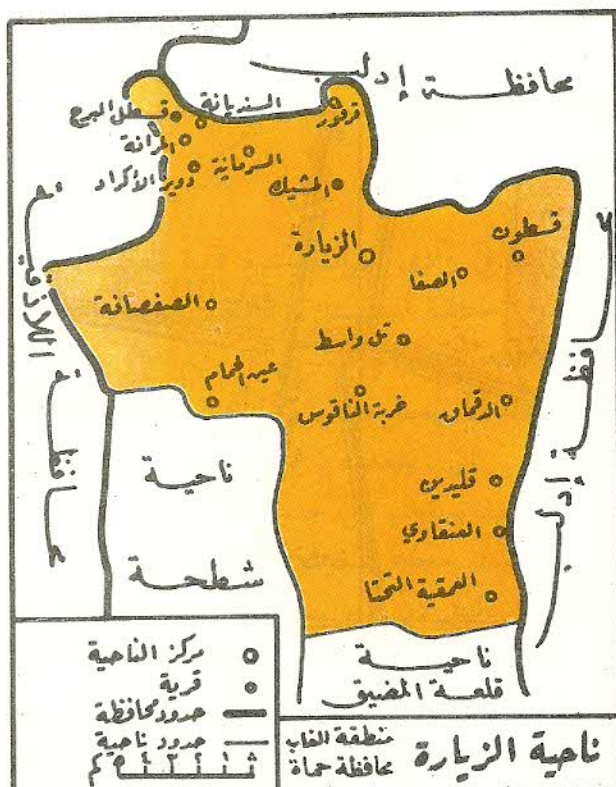 محافظة إدلب
السنديانة
قسطل البرج
قرقور
المرانة
السرمانية
دوير الأكراد
المشيك
قسطون
الزيارة
الصفا
الصفصافة
تل واسط
عين الحمام
خربة الناقوس
الدقماق
قليدين
العنقاوي
العمقية التحتا
محافظة اللاذقية
محافظة إدلب
ناحية
شطحة
ناحية
قلعة المضيق
مركز الناحية
قرية
حدود محافظة
حدود ناحية
كم
ناحية الزيارة
منطقة الغاب
محافظة حماة